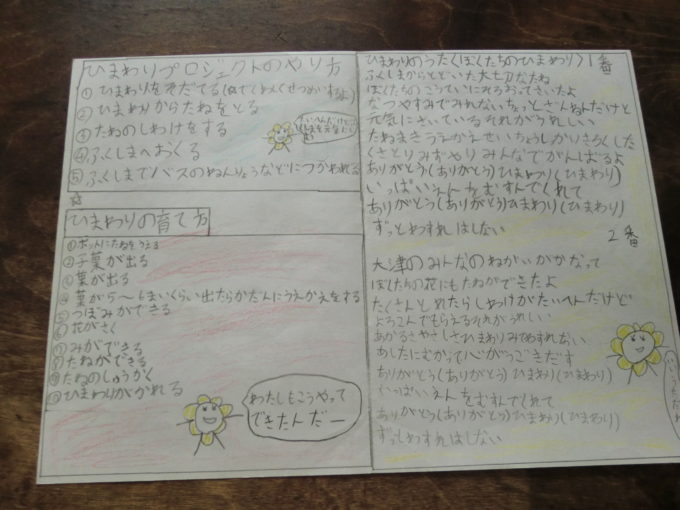 ひまわりプロジェクトのやり方
①ひまわりをそだてる(下でくわしくせつめいするよ)
②ひまわりからたねをとる
③たねのしわけをする
④ふくしまへおくる
⑤ふくしまでバスのねんりょうなどにつかわれる
ひまわりの育て方
①ポットにたねをうえる
②子葉が出る
③葉が出る
④葉が5〜6まいくらい出たらかだんにうえかえをする
⑤つぼみができる
⑥花がさく
⑦みができる
⑧たねができる
⑨たねのしゅうかく
⑩ひまわりがかれる
わたしもこうやって
できたんだー
ひまわりのうた〈ぼくたちのひまわり〉1番
ふくしまからとどいた大切なたね
ぼくたちのこうていにそろおってさいたよ
なつやすみでみれないちょっとざんねんだけど
元気にさいているそれがうれしい
たねまきうえかえせいちょうしっかりきろくした
くさとりみずやりみんなでがんばるよ
ありがとう(ありがとう)ひまわり(ひまわり)
いっぱいえんをむすんでくれて
ありがとう(ありがとう)ひまわり(ひまわり)
ずっとわすれはしない
2番
大津のみんなのねがいがかなって
ぼくたちの花にもたねができたよ
たくさんとれたらしわけがたいへんだけど
よろこんでもらえるそれがうれしい
あかるさやさしさひまわりみてわすれない
あしたにむかって心がうごきだす
ありがとう(ありがとう)ひまわり(ひまわり)
いっぱいえんをむすんでくれて
ありがとう(ありがとう)ひまわり(ひまわり)
ずっとわすれはしない